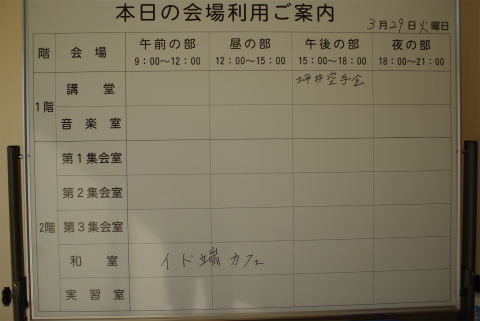 本日の会場利用ご案内
3月29日火曜日
階 会場 午前の部 昼の部 午後の部 夜の部
9:00〜12:00 12:00〜15:00 15:00〜18:00 18:00〜21:00
1階 講堂 坪井空手会
音楽室
2階 第1集会室
第2集会室
第3集会室
和室 イド端カフェ
実習室